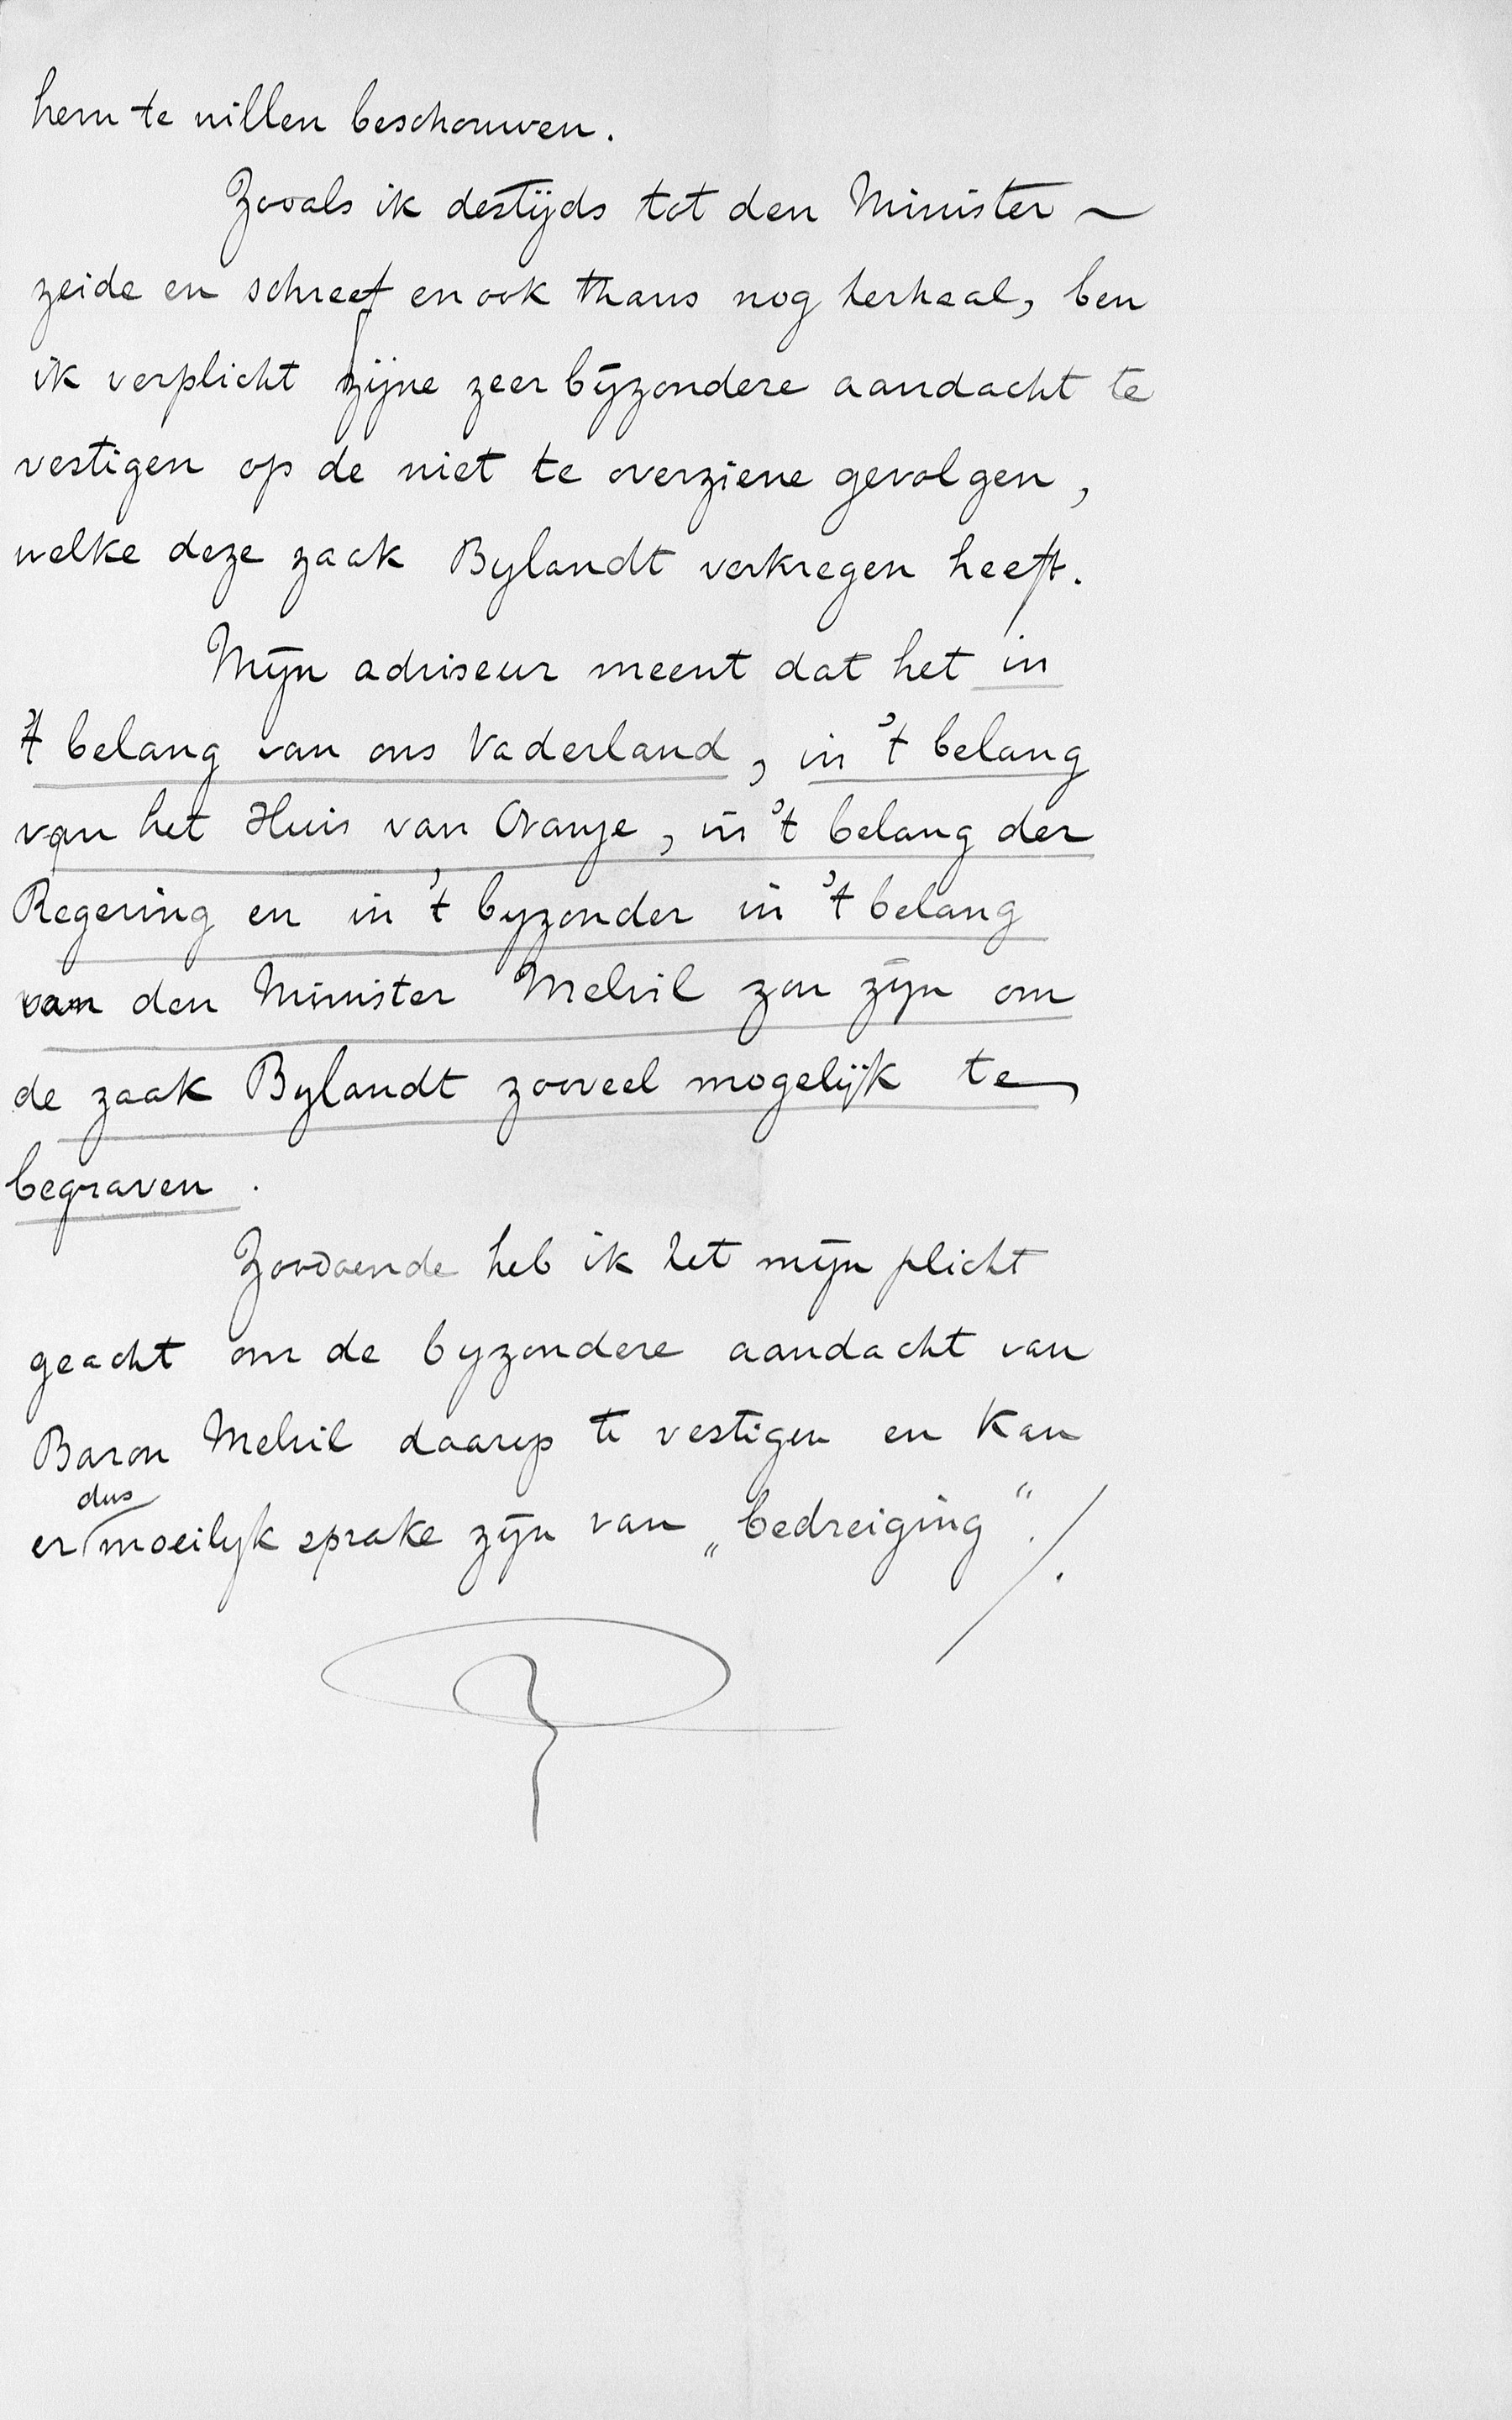 hem te willen beschouwen.
Zooals ik destijds tot den Minister ~
zeide en schreef en ook thans nog herhaal, ben
ik verplicht zijne zeer bijzondere aandacht te
vestigen op de niet te overziene gevolgen,
welke deze zaak Bylandt verkregen heeft.
Mijn adviseur meent dat het in
't belang van ons Vaderland, in 't belang
van het Huis van Oranje, in 't belang der
Regering en in 't byzonder in 't belang
van den Minister Melvil zou zijn om
de zaak Bylandt zooveel mogelijk te
begraven.
Zoodoende heb ik het mijn plicht
geacht om de byzondere aandacht van
Baron Melvil daarop te vestigen en kan
dus
er moeilyk sprake zijn van „bedreiging". /.